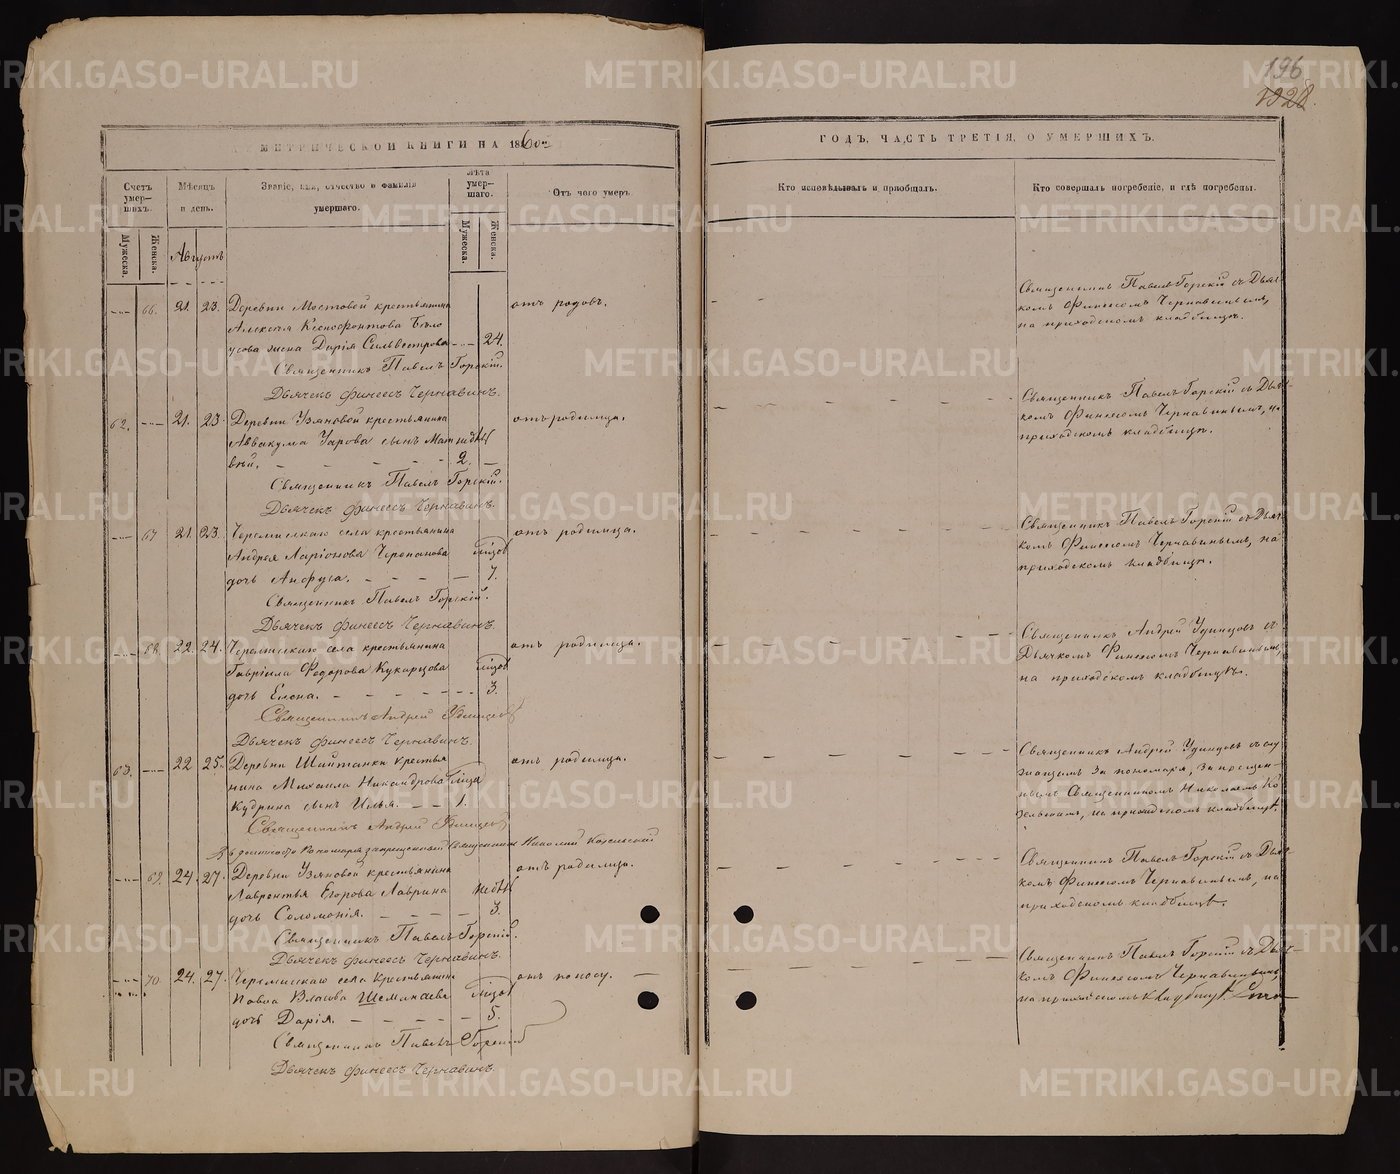 196
1928.
МЕТРИЧЕСКОЙ КНИГИ НА 1860й
ГОДЪ, ЧАСТЬ ТРЕТІЯ, О УМЕРШИХЪ.
Счетъ умер-шихъ.
Мужеска.
Женска.
Мѣсяцъ и день.
Званіе, имя, отчество и фамилія умершаго.
Лѣта умер-шаго.
Мужеска.
Женска.
Отъ чего умеръ.
Кто исповѣдывалъ и пріобщалъ.
Кто совершалъ погребеніе, и гдѣ погребены.
Августъ
66. 21. 23. Деревни Мостовой крестьянина отъ родовъ.
Алексѣя Ксенофонтова Бѣло
усова жена Дарія Сильвестрова 24.
Священникъ Павелъ Горскій.
Дьячекъ Финеесъ Чернавинъ.
Священникъ Павелъ Горскій съ Дьяч-
комъ Финеесомъ Чернавинымъ,
на приходскомъ кладбищѣ.
62. 21. 23. Деревни Узяновой крестьянина отъ родимца.
Аввакума Уарова сынъ Мат недѣл
вѣй. 2.
Священникъ Павелъ Горскій.
Дьячекъ Финеесъ Чернавинъ.
Священникъ Павелъ Горскій съ Дьяч-
комъ Финеесомъ Чернавинымъ, на
приходскомъ кладбищѣ.
67. 21. 23. Черемисскаго села крестьянина отъ родимца.
Андрея Ларіонова Черепанова мѣсяц
дочь Анфуса. 7.
Священникъ Павелъ Горскій.
Дьячекъ Финеесъ Чернавинъ.
Священникъ Павелъ Горскій съ Дьяч-
комъ Финеесомъ Чернавинымъ, на
приходскомъ кладбищѣ.
68. 22. 24. Черемисскаго села крестьянина отъ родимца.
Гавріила Федорова Кукарцова мѣсяц
дочь Елена. 3.
Священникъ Андрей Удинцевъ
Дьячекъ Финеесъ Чернавинъ.
Священникъ Андрей Удинцовъ съ
Дьячкомъ Финеесомъ Чернавинымъ,
на приходскомъ кладбищѣ.
63. 22 25. Деревни Шайтанки крестья отъ родимца.
нина Михаила Никандрова мѣсяца
Кудрина сынъ Илья. 1.
Священникъ Андрей Удинцевъ
въ должности Пономаря запрещенный Священникъ Николай
Священникъ Андрей Удинцовъ съ слу
жащимъ за пономаря, запрещен-
нымъ Священникомъ Николаемъ
на приходскомъ кладбищѣ.
69. 24. 27. Деревни Узяновой крестьянина отъ родимца.
Лаврентья Егорова Лаврина недѣл
дочь Соломонія. 3.
Священникъ Павелъ Горскій.
Дьячекъ Финеесъ Чернавинъ.
Священникъ Павелъ Горскій съ Дьяч-
комъ Финеесомъ Чернавинымъ, на
приходскомъ кладбищѣ.
70. 24. 27. Черемисскаго села крестьянина отъ поносу.
Павла Власова Шеманаева мѣсяц
дочь Дарія. 5.
Священникъ Павелъ Горскій
Дьячекъ Финеесъ Чернавинъ.
Священникъ Павелъ Горскій съ Дьяч-
комъ Финеесомъ Чернавинымъ,
на приходскомъ кладбищѣ.
METRIKI.GASO-URAL.RU